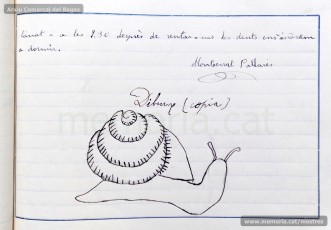 Arxiu Comarcal del Bages
a les 9.30 després de rentar-nos les dents
a dormir.
Montserrat Pallarès
Dibuix (còpia)
memoria.cat
www.memoria.cat/mestres